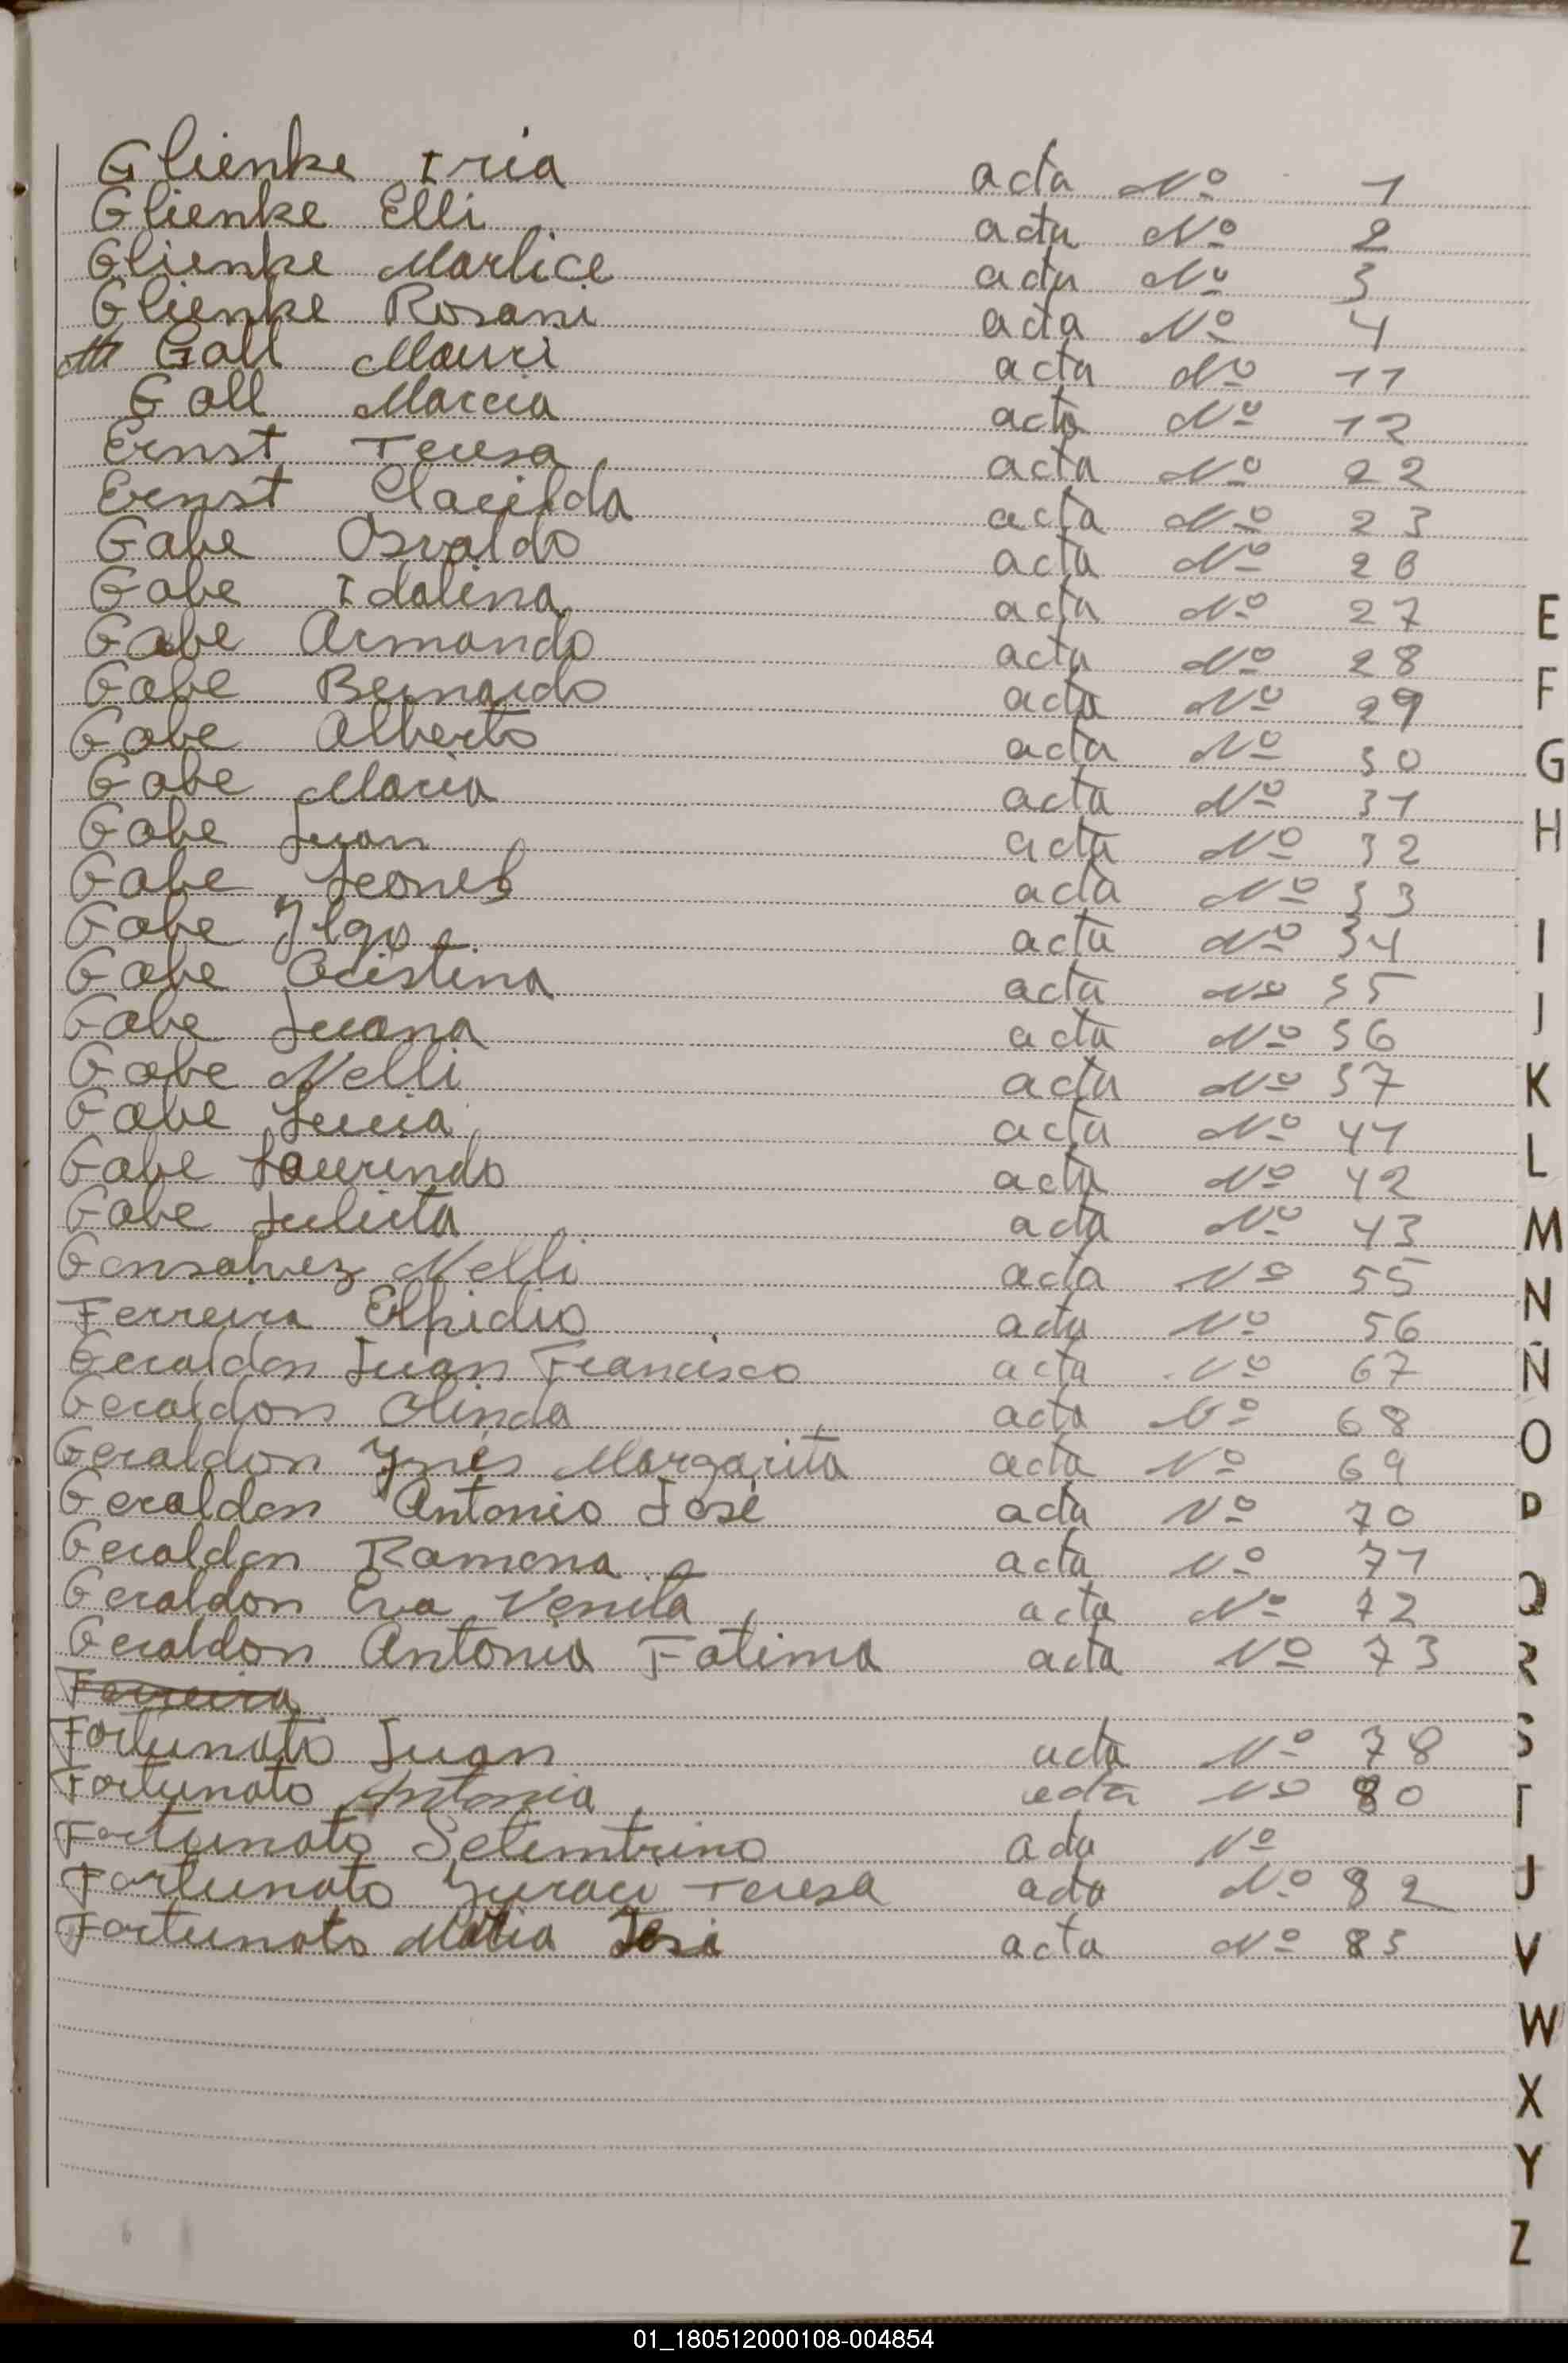 Glienke Iria acta Nº 1
Glienke Elli acta Nº 2
Glienke Marlice acta Nº 3
Glienke Rosani acta Nº 4
Gall Mauri acta Nº 11
Gall Marcia acta Nº 12
Ernst Teresa acta Nº 22
Ernst Clacilda acta Nº 23
Gabe Osvaldo acta Nº 26
Gabe Idalina acta Nº 27
Gabe Armando acta Nº 28
Gabe Bernardo acta Nº 29
Gabe Alberto acta Nº 30
Gabe Maria acta Nº 31
Gabe Juan acta Nº 32
Gabe Leonel acta Nº 33
Gabe Ilgo acta Nº 34
Gabe Cristina acta Nº 35
Gabe Juana acta Nº 36
Gabe Nelli acta Nº 37
Gabe Lucia acta Nº 41
Gabe Laurindo acta Nº 42
Gabe Julieta acta Nº 43
Gonsalvez Nelli acta Nº 55
Ferreira Elpidio acta Nº 56
Geraldon Juan Francisco acta Nº 67
Geraldon Olinda acta Nº 68
Geraldon Ynés Margarita acta Nº 69
Geraldon Antonio José acta Nº 70
Geraldon Ramona acta Nº 71
Geraldon Eva Venita acta Nº 72
Geraldon Antonia Fatima acta Nº 73
Ferreira
Fortunato Juan acta Nº 78
Fortunato Antonia acta Nº 80
Fortunato Setembrino acta Nº
Fortunato Juraci Teresa acta Nº 82
Fortunato Maria acta Nº 83
E
F
G
H
I
J
K
L
M
N
Ñ
O
P
Q
R
S
T
U
V
W
X
Y
Z
01_180512000108-004854